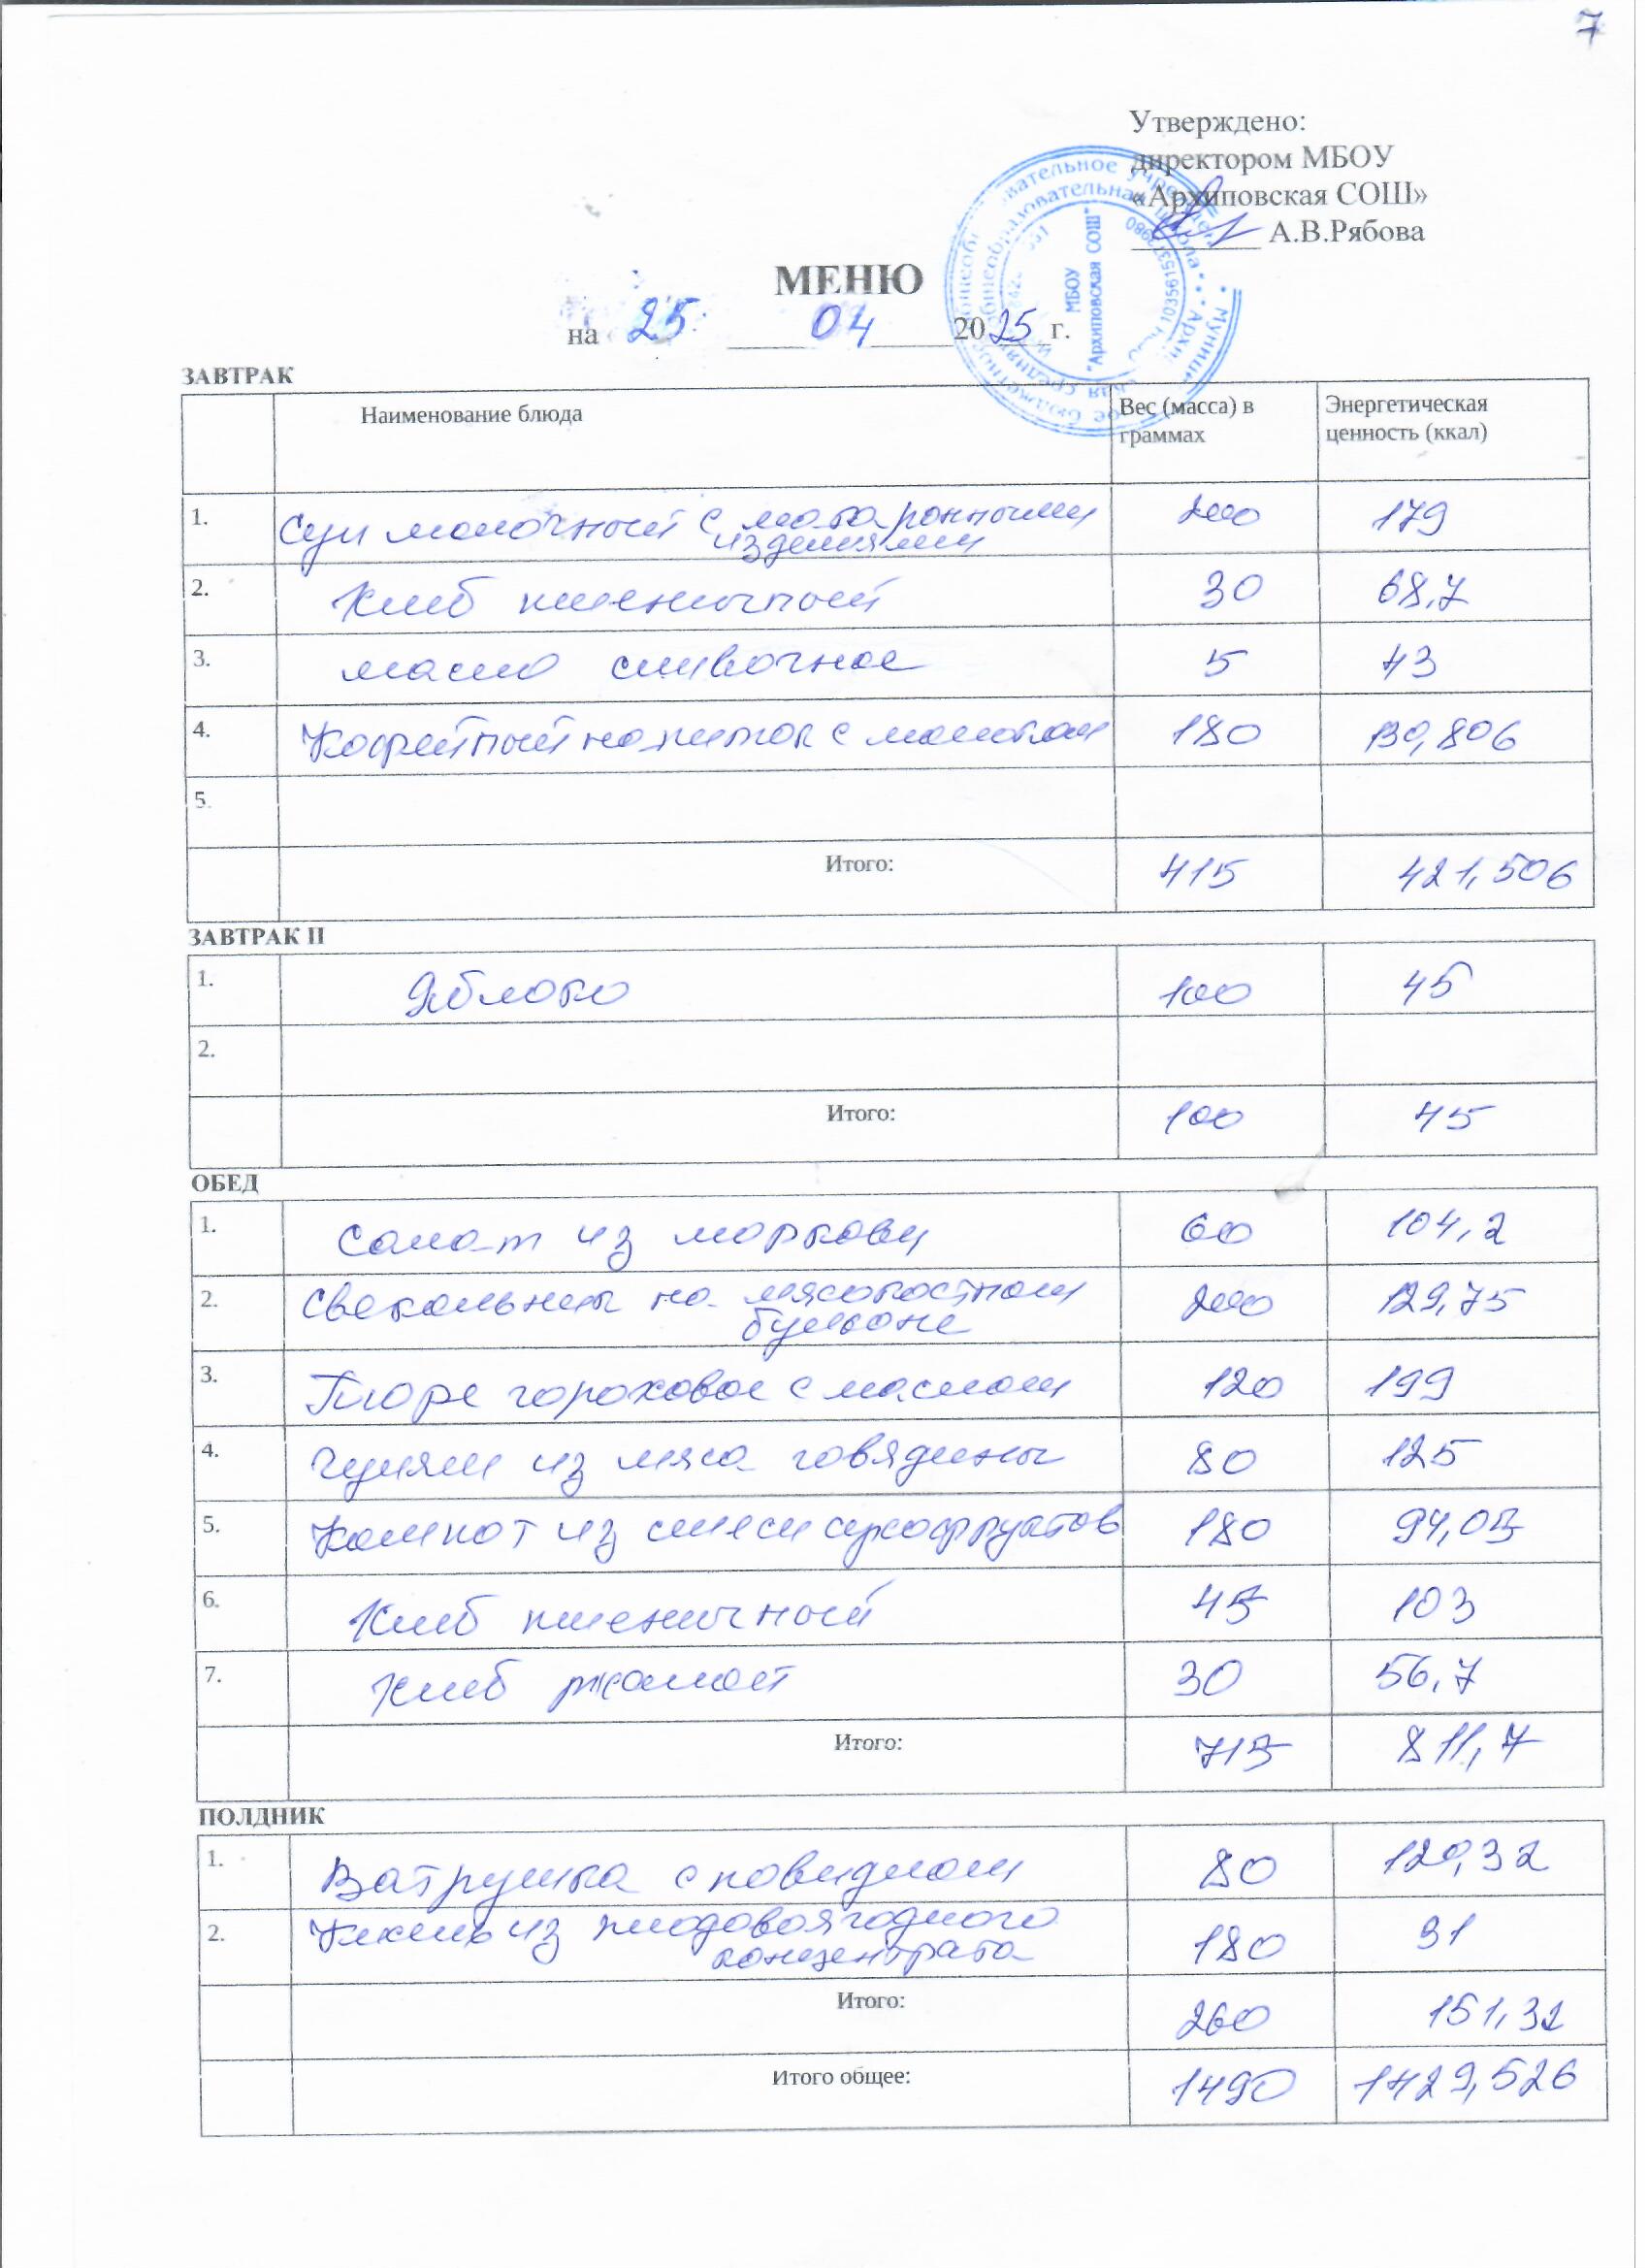 7
Утверждено:
директором МБОУ
«Архиповская СОШ»
А.В.Рябова
МБОУ
"Архиповская СОШ"
МЕНЮ
на 25 04 2025 г.
ЗАВТРАК
Наименование блюда Вес (масса) в граммах Энергетическая ценность (ккал)
1. Суп молочный с макаронными изделиями 200 179
2. Хлеб пшеничный 30 68,7
3. масло сливочное 5 43
4. Кофейный напиток с молоком 180 130,806
5.
Итого: 415 421,506
ЗАВТРАК II
1. Яблоко 100 45
2.
Итого: 100 45
ОБЕД
1. Салат из моркови 60 104,2
2. Свекольник на мясокостном бульоне 200 129,75
3. Пюре гороховое с маслом 120 199
4. Гуляш из мяса говядины 80 125
5. Компот из смеси сухофруктов 180 94,05
6. Хлеб пшеничный 45 103
7. Хлеб ржаной 30 56,7
Итого: 715 811,7
ПОЛДНИК
1. Ватрушка с повидлом 80 120,32
2. Кисель из плодовоягодного концентрата 180 31
Итого: 260 151,32
Итого общее: 1490 1429,526